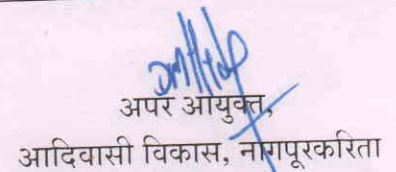 अपर आयुक्त,
आदिवासी विकास, नागपूरकरिता